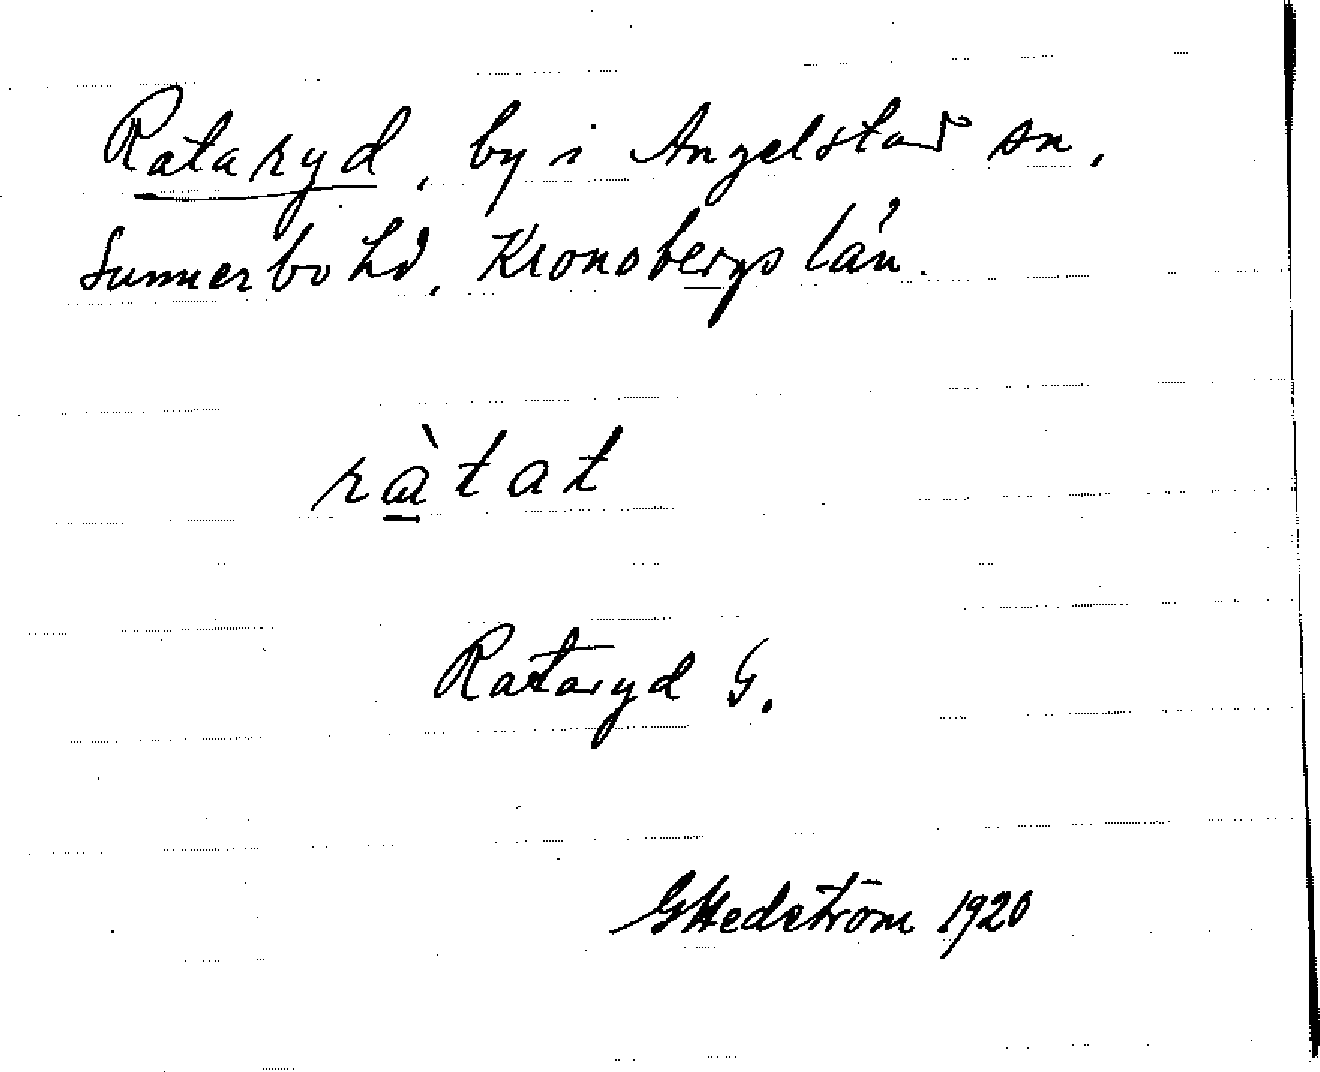 Rataryd, by i Angelstad sn,
Sunnerbo hd, Kronobergs län.
ràtat
Rataryd G.
GHedström 1920